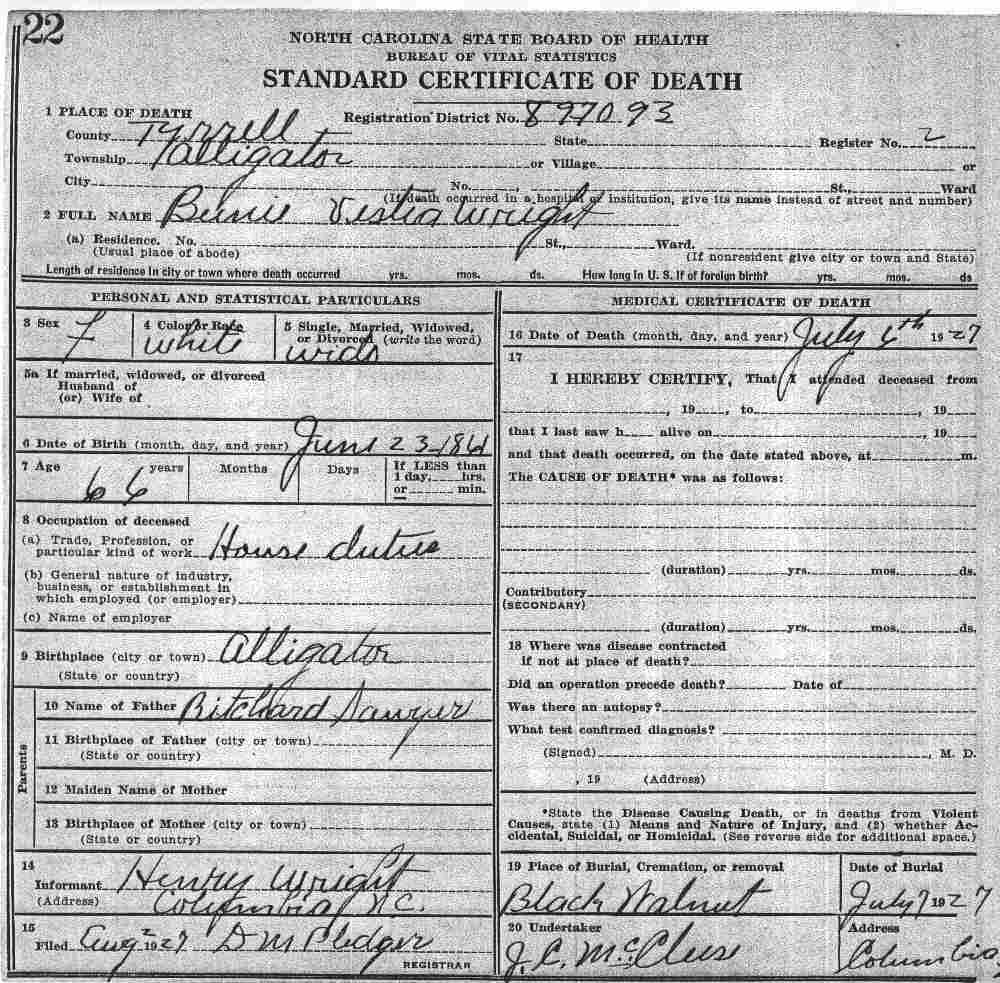 22
NORTH CAROLINA STATE BOARD OF HEALTH
BUREAU OF VITAL STATISTICS
STANDARD CERTIFICATE OF DEATH
1 PLACE OF DEATH Registration District No. 897093
County Tyrrell State Register No. 2
Township Alligator or Village or
City No. , St., Ward
(If death occurred in a hospital or institution, give its name instead of street and number)
2 FULL NAME Vestia Wright
(a) Residence. No. St., Ward.
(Usual place of abode) (If nonresident give city or town and State)
Length of residence in city or town where death occurred yrs. mos. ds. How long in U. S. if of foreign birth? yrs. mos. ds
PERSONAL AND STATISTICAL PARTICULARS
3 Sex F 4 Color or Race white 5 Single, Married, Widowed,
or Divorced (write the word)
wido
5a If married, widowed, or divorced
Husband of
(or) Wife of
6 Date of Birth (month, day, and year) June 23 1861
7 Age 66 years Months Days If LESS than
1 day, hrs.
or min.
8 Occupation of deceased
(a) Trade, Profession, or
particular kind of work House duties
(b) General nature of industry,
business, or establishment in
which employed (or employer)
(c) Name of employer
9 Birthplace (city or town) Alligator
(State or country)
Parents
10 Name of Father Ritchard Sawyer
11 Birthplace of Father (city or town)
(State or country)
12 Maiden Name of Mother
13 Birthplace of Mother (city or town)
(State or country)
14
Informant Henry Wright
(Address) Columbia N.C.
15
Filed Aug 2 1927 D M Pledger
REGISTRAR
MEDICAL CERTIFICATE OF DEATH
16 Date of Death (month, day, and year) July 6th 1927
17
I HEREBY CERTIFY, That I attended deceased from
, 19 , to , 19
that I last saw h alive on , 19
and that death occurred, on the date stated above, at m.
The CAUSE OF DEATH* was as follows:
(duration) yrs. mos. ds.
Contributory
(SECONDARY)
(duration) yrs. mos. ds.
18 Where was disease contracted
if not at place of death?
Did an operation precede death? Date of
Was there an autopsy?
What test confirmed diagnosis?
(Signed) , M. D.
, 19 (Address)
*State the Disease Causing Death, or in deaths from Violent
Causes, state (1) Means and Nature of Injury, and (2) whether Ac-
cidental, Suicidal, or Homicidal. (See reverse side for additional space.)
19 Place of Burial, Cremation, or removal Date of Burial
Black Walnut July 7 1927
20 Undertaker Address
J. C. McClees Columbia